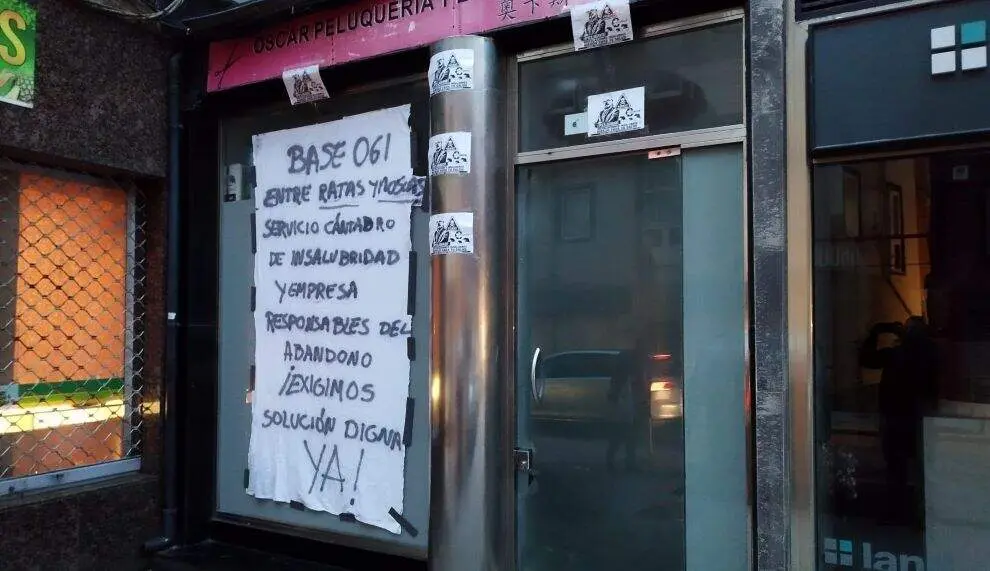 S
OSCAR PELUQUERIA Y
BASE 061
ENTRE RATAS Y MOSCAS
SERVICIO CÁNTABRO
DE INSALUBRIDAD
Y EMPRESA
RESPONSABLES DEL
ABANDONO
¡EXIGIMOS
SOLUCIÓN DIGNA
YA!
lan